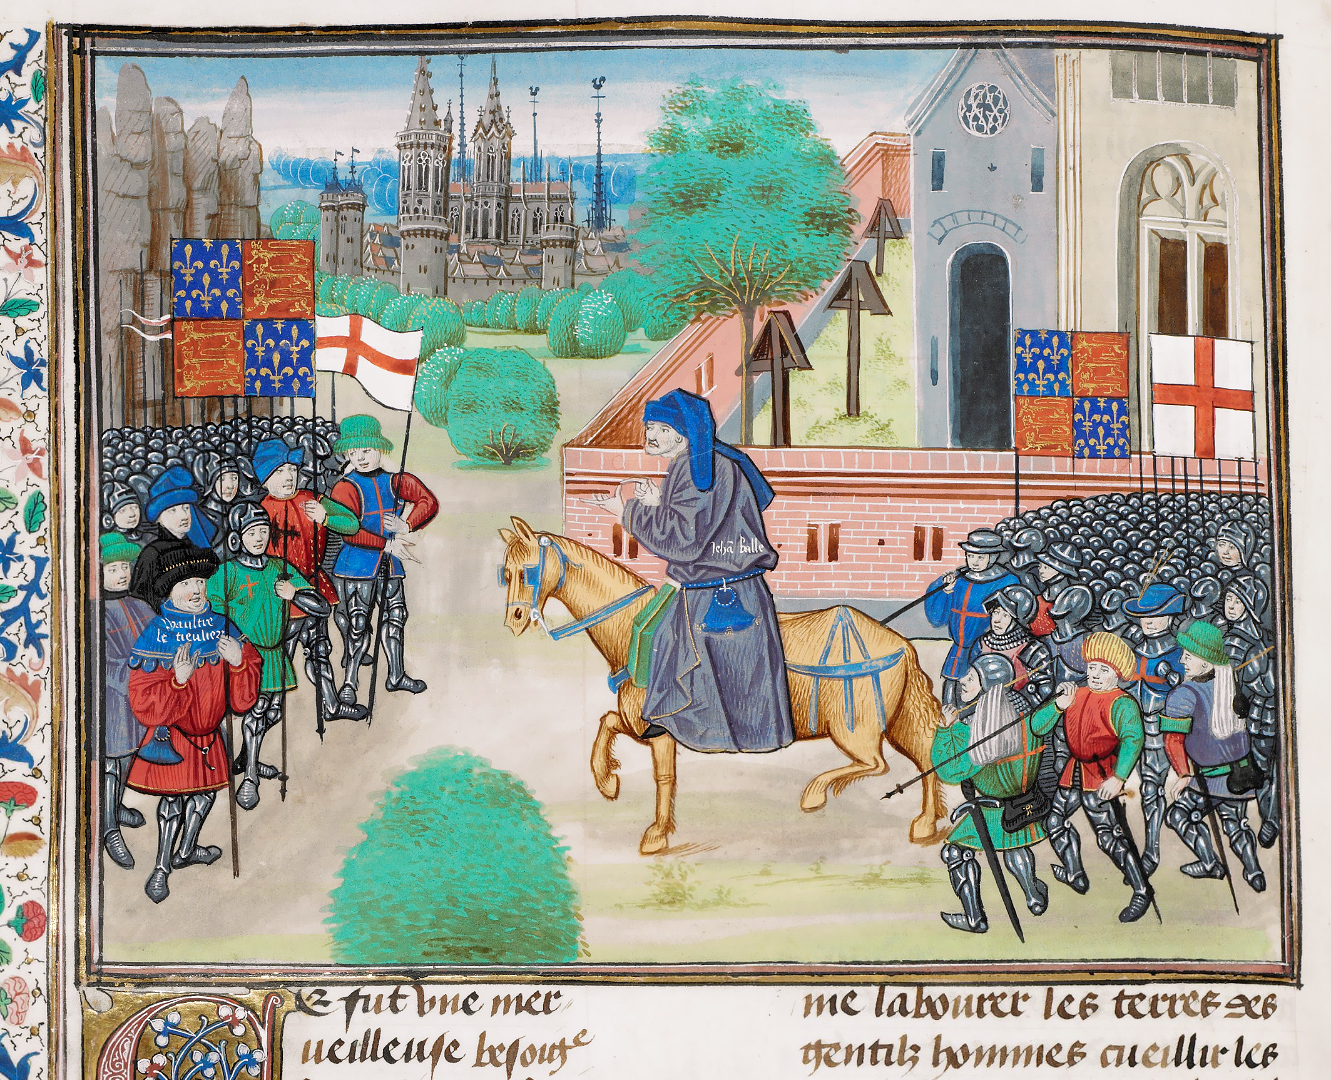 Jehã balle
Waultre
le tieulier
e fut vne mer
ueilleuse besong^e
me labourer les terres des
gentilz hommes cueillir les